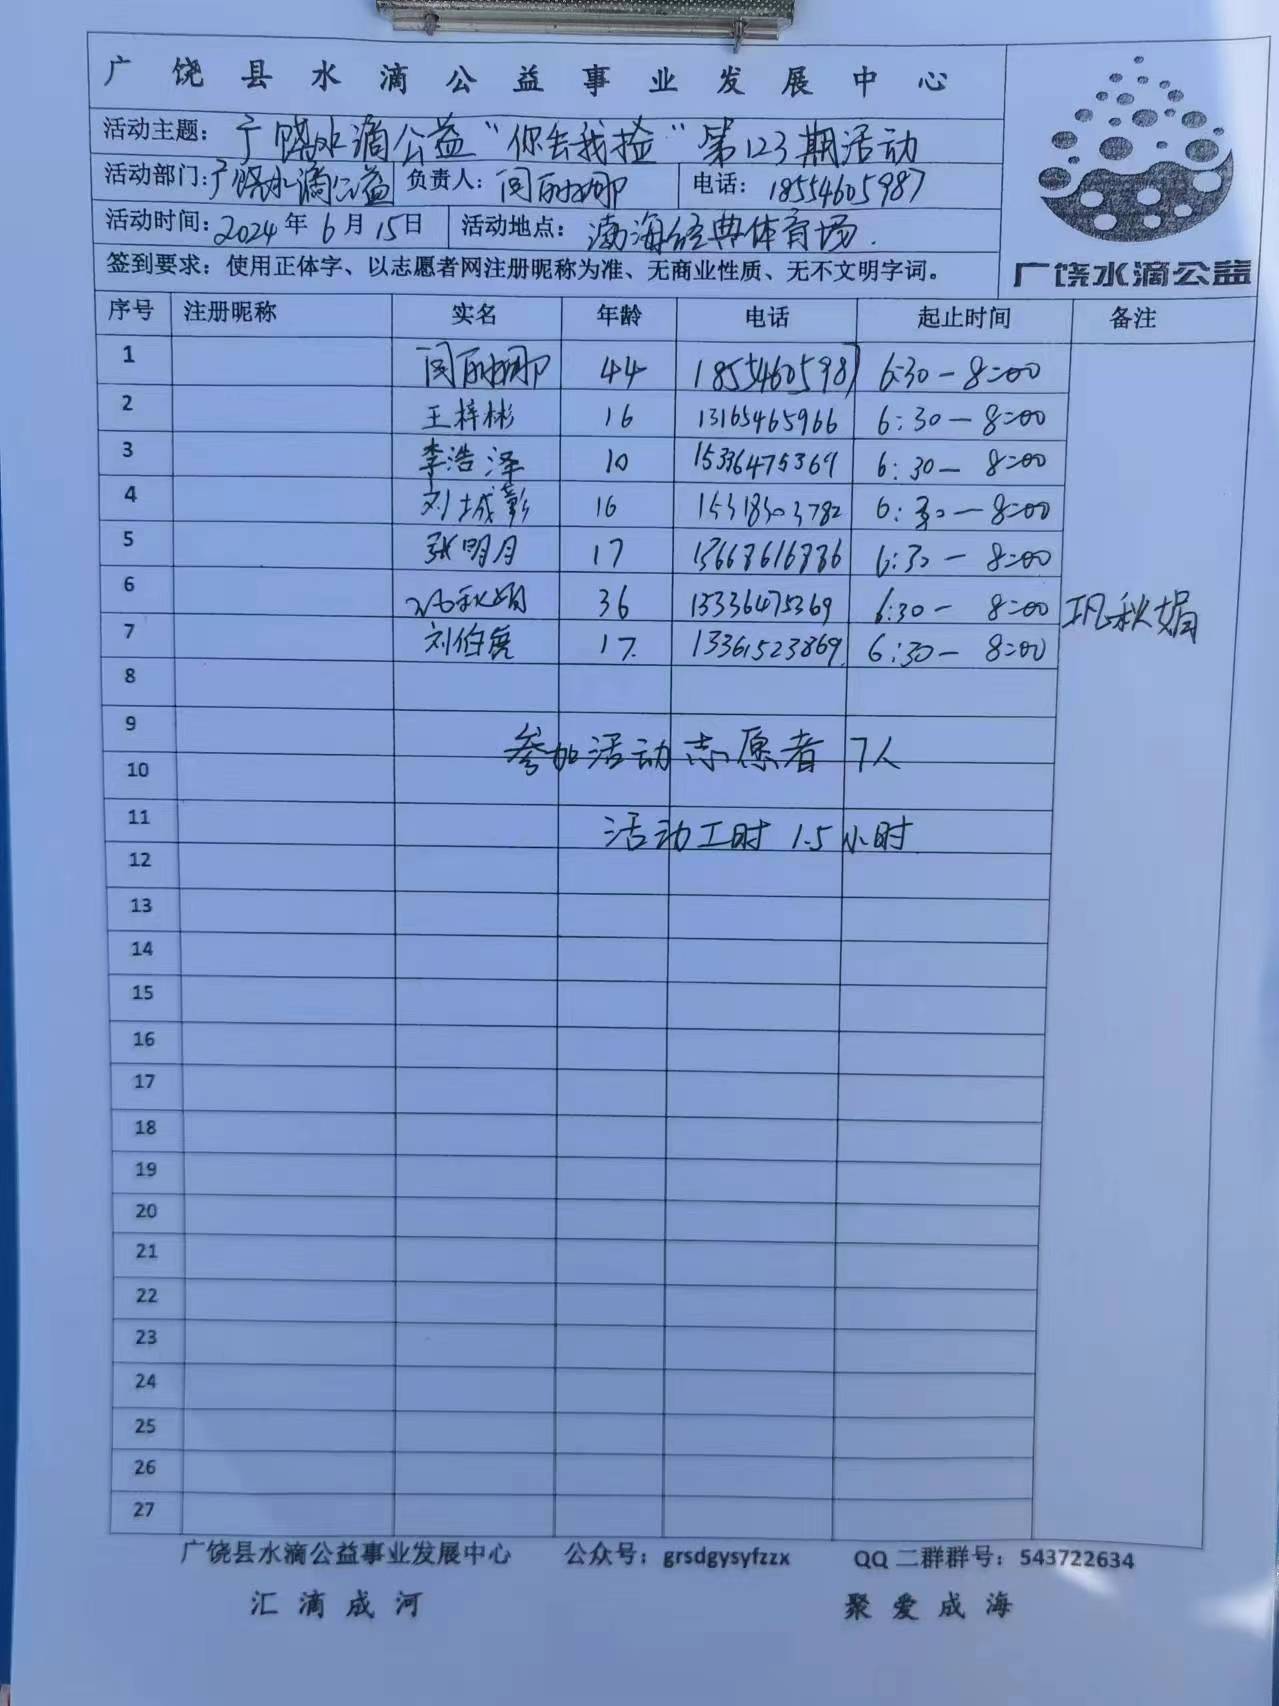 广饶县水滴公益事业发展中心
活动主题：广饶水滴公益“你丢我捡”第123期活动
活动部门：广饶水滴公益 负责人：闫丽娜 电话：18554605987
活动时间：2024年6月15日 活动地点：渤海经典体育场.
签到要求：使用正体字、以志愿者网注册昵称为准、无商业性质、无不文明字词。
广饶水滴公益
序号 注册昵称 实名 年龄 电话 起止时间 备注
1 闫丽娜 44 18554605987 6:30-8:00
2 王梓彬 16 13165465966 6:30-8:00
3 李浩泽 10 15336475369 6:30-8:00
4 刘城彰 16 6:30-8:00
5 张明月 17 13668616886 6:30-8:00
6 巩秋娟 36 15336475369 6:30-8:00 巩秋娟
7 刘伯虎 17. 13361523869. 6:30-8:00
8
9
参加活动志愿者7人
10
11
活动工时1.5小时
12
13
14
15
16
17
18
19
20
21
22
23
24
25
26
27
广饶县水滴公益事业发展中心 公众号：grsdgysyfzzx QQ二群群号：543722634
汇滴成河 聚爱成海